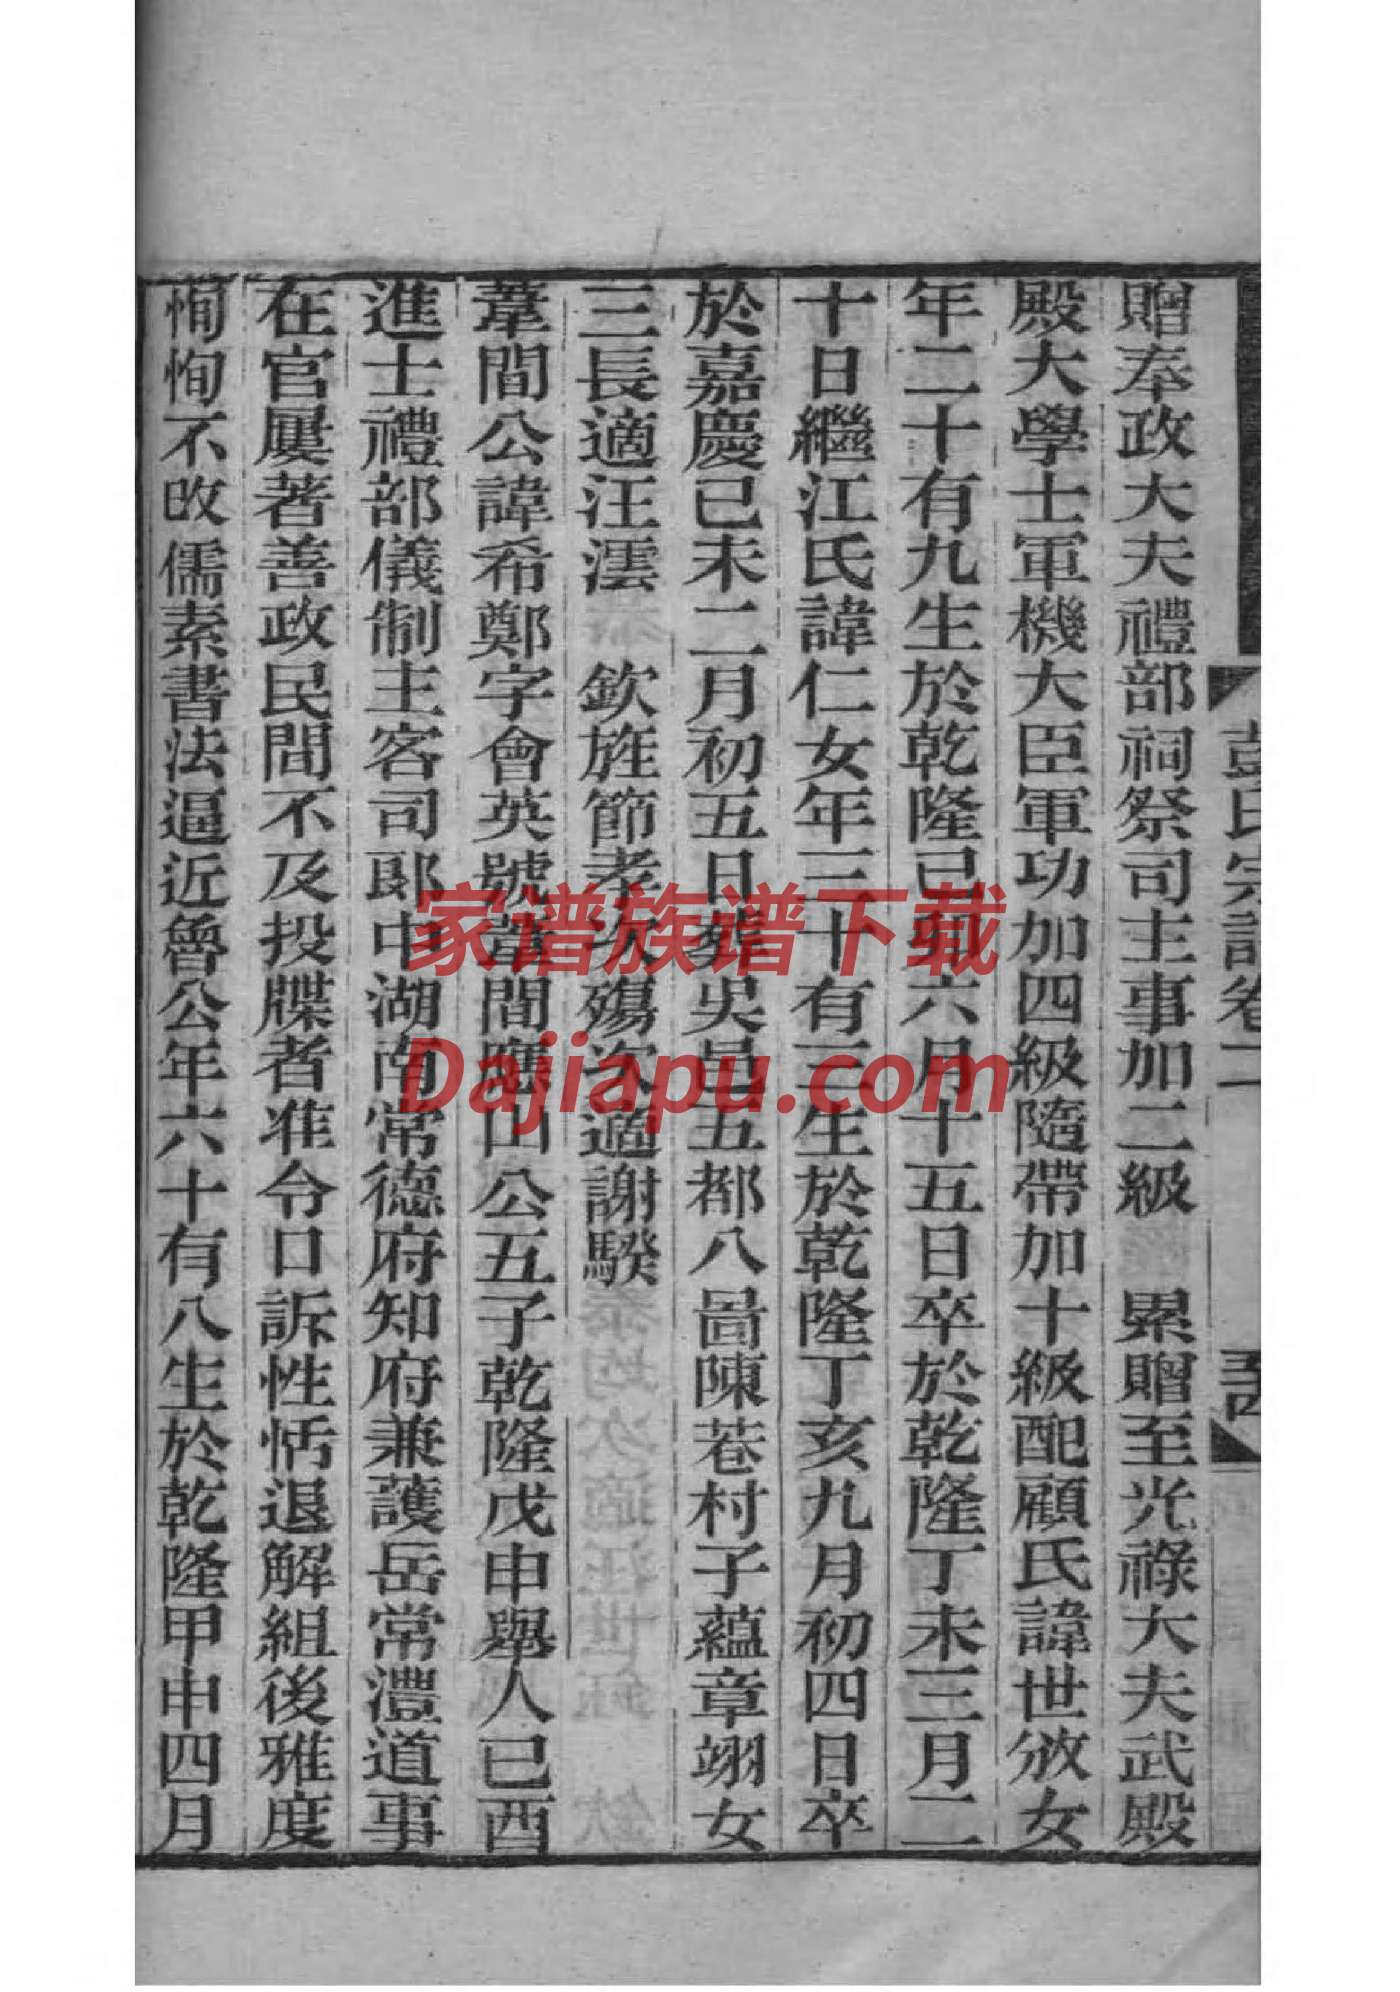 彭氏宗譜卷二
贈奉政大夫禮部祠祭司主事加二級　累贈至光祿大夫武殿
殿大學士軍機大臣軍功加四級隨帶加十級配顧氏諱世攽女
年二十有九生於乾隆己卯六月十五日卒於乾隆丁未三月二
十日繼江氏諱仁女年三十有三生於乾隆丁亥九月初四日卒
於嘉慶已未二月初五日葬吳邑五都八啚陳巷村子蘊章翊女
三長適汪澐　欽旌節孝次殤次適謝騤
葦間公諱希鄭字會英號葦間應山公五子乾隆戊申舉人已酉
進士禮部儀制主客司郎中湖南常德府知府兼護岳常澧道事
在官屢著善政民間不及投牒者准令口訴性恬退解組後雅度
恂恂不改儒素書法逼近魯公年六十有八生於乾隆甲申四月
家谱族谱下载
Dajiapu.com